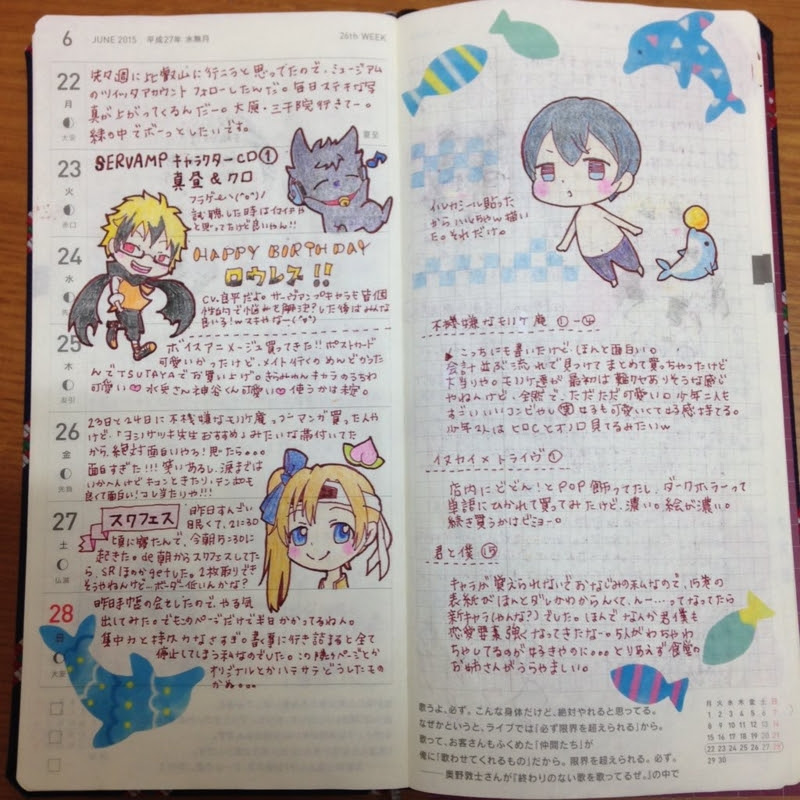 6 JUNE 2015 平成27年 水無月 26th WEEK
22 月 大安
先々週に比叡山に行こうと思ってたので、ミュージアム
のツイッタアカウントフォローしたんだ。毎日ステキな写
真が上がってくるんだー。大原・三千院行きてー。
緑の中でボーっとしたいです。
夏至
23 火 赤口
SERVAMP キャラクターCD①
真昼&クロ
フラゲ
試聴した時は
と思ってたけど良いやん!!
24 水
HAPPY BIRTHDAY
ロウレス!!
CV.良平だよ。サーヴァンプキャラも皆個
性的で悩みを解決?した後はみんな
良いる!wスキやなー(^o^)
25 木 友引
ボイスアニメージュ買ってきた!!ポストカード
可愛いかったけど、メイト行くのめんどかった
んでTSUTAYAでお買い上げ。きらみゅんキャラのうちわ
可愛い♡水兵さん神谷くん可愛い♡使うかは未定。
26 金 先負
23日と24日に不機嫌なモノノケ庵っつーマンガ買ったんや
けど、「ヨシノサツキ先生おすすめ」みたいな帯付いてた
から、絶対面白いやろ!思たら。。。
面白すぎた!!!笑いあるし、涙までは
いかへんけどキュンときたり、テンポも
良くて面白い!コレ当たりや!!!
27 土 仏滅
スクフェス
昨日すんごい
眠くて、21:30
頃に寝たんで、今朝5:30に
起きた。de朝からスクフェスしてた
ら、SRほのかgetした。2枚取りでき
そうやねんけどボーダー低いんかな?
28 日 大安
昨日手帳の会をしたので、やる気
出してみた。でもこのページだけで半日かかってるねん。
集中力と持久力なさすぎ。食事に行き詰まると全て
停止してしまう私なのでした。この隣のページとか
オリジナルとかハテサテどうしたもの
かね。。。
イルカシール貼った
からハルちゃん描い
た。それだけ。
不機嫌なモノノケ庵 ①-④
こっちにも書いたけど、ほんと面白い。
会計並ぶ流れで見つけてまとめて買っちゃったけど
大当りや。モノノケ達が最初は難アリありそうな感じ
やねんけど、全然で、ただただ可愛い。少年二人も
すごいいいコンビやし可愛くて好感持てる。
イヌカイ×トライヴ①
店内にどどん!とPOP飾ってたし、ダークホラーって
単語にひかれて買ってみたけど、濃い。絵が濃い。
続き買うかはビミョー。
君と僕⑮
キャラが覚えられないでおなじみの私なので、15巻の
表紙がほんとダレかわからんくて、んー…ってなってたら
新キャラ(やんな?)でした。ほんでなんか君僕も
恋愛要素強くなってきたなー。5人がわちゃわ
ちゃしてるのが好きやのに。。。とりあえず食堂の
お姉さんがうらやましい。
歌うよ、必ず。こんな身体だけど、絶対やれると思ってる。
なぜかというと、ライブでは「必ず限界を超えられる」から。
歌って、お客さんもふくめた「仲間たち」が
俺に「歌わせてくれるもの」だから。限界を超えられる。必ず。
——奥野敦士さんが『終わりのない歌を歌ってるぜ。』の中で
月 火 水 木 金 土 日
1 2 3 4 5 6 7
8 9 10 11 12 13 14
15 16 17 18 19 20 21
22 23 24 25 26 27 28
29 30